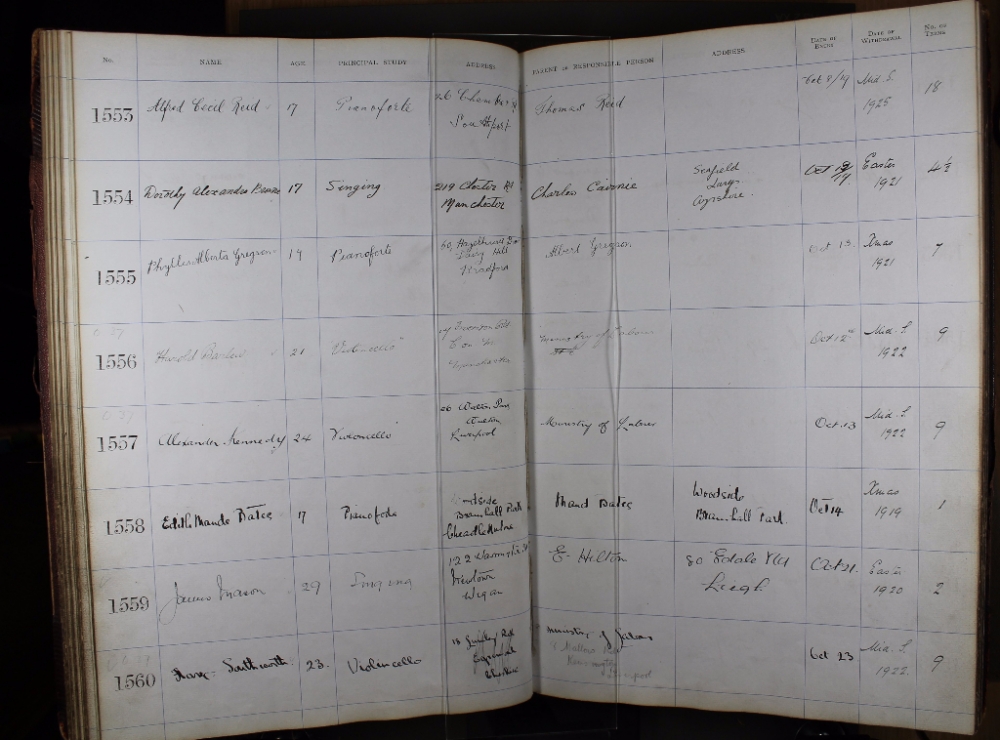 No. NAME AGE PRINCIPAL STUDY ADDRESS PARENT OR RESPONSIBLE PERSON ADDRESS DATE OF ENTRY DATE OF WITHDRAWAL No. OF TERMS
1553 Alfred Cecil Reid 17 Pianoforte 26 Thomas Reid Oct 8/19 Mid. S. 18
Southport 1925
1554 Dorothy Alexandra 17 Singing 219 Chester Rd Charles Cairnie Seafield Oct Easter 4½
Manchester Largs 1921
Ayrshire.
1555 Phyllis Alberta Gregson 19 Pianoforte 60, Albert Gregson. Oct 13. Xmas 7
Hill 1921
Bradford
1556 Harold Barlow 21 Violoncello Ministry of Labour Oct 12th Mid. S 9
Manchester 1922
1557 Alexander Kennedy 24 Violoncello 26 Ministry of Labour Oct 13 Mid. S 9
Walton 1922
Liverpool
1558 Edith Maude Bates 17 Pianoforte Woodside Maud Bates Woodside Oct 14 Xmas 1
Bramhall Park Bramhall Park. 1919
Cheadle Hulme
1559 James Mason 29 Singing 122 E. Hilton 80 Edale Rd Oct 21. Easter 2
Wigan Leigh. 1920
1560 Southworth. 23. Violincello 18 Rd Ministry of Labour Oct 23 Mid. S 9
Egremont Liverpool 1922